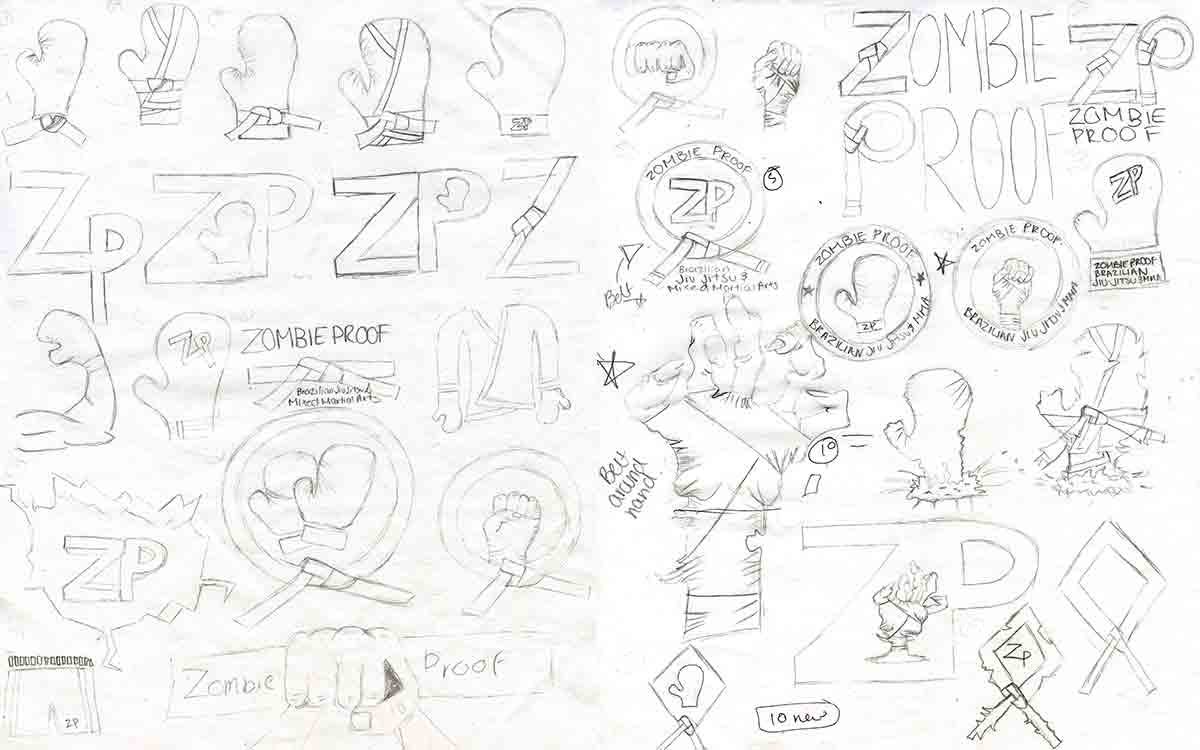 ZP
ZP
ZP
ZP
Z
ZP
ZOMBIE PROOF
Brazilian Jiu Jitsu &
Mixed Martial Arts
ZP
ZP
Zombie
Proof
ZOMBIE
PROOF
ZP
ZOMBIE
PROOF
ZOMBIE PROOF
ZP
5
Brazilian
Jiu Jitsu &
Mixed Martial Arts
Belt
ZOMBIE PROOF
ZP
BRAZILIAN JIU JITSU & MMA
ZOMBIE PROOF
BRAZILIAN JIU JITSU MMA
ZP
ZOMBIE PROOF
BRAZILIAN
JIU JITSU & MMA
Belt
around
hand
10
ZP
ZP
10 new